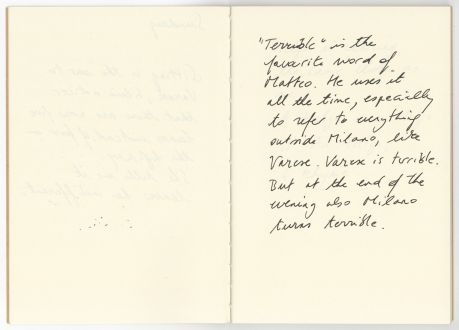 "Terrible" is the
favorite word of
Matteo. He uses it
all the time, especially
to refer to everything
outside Milano, like
Varese. Varese is terrible.
But at the end of the
evening also Milano
turns terrible.
Sunday